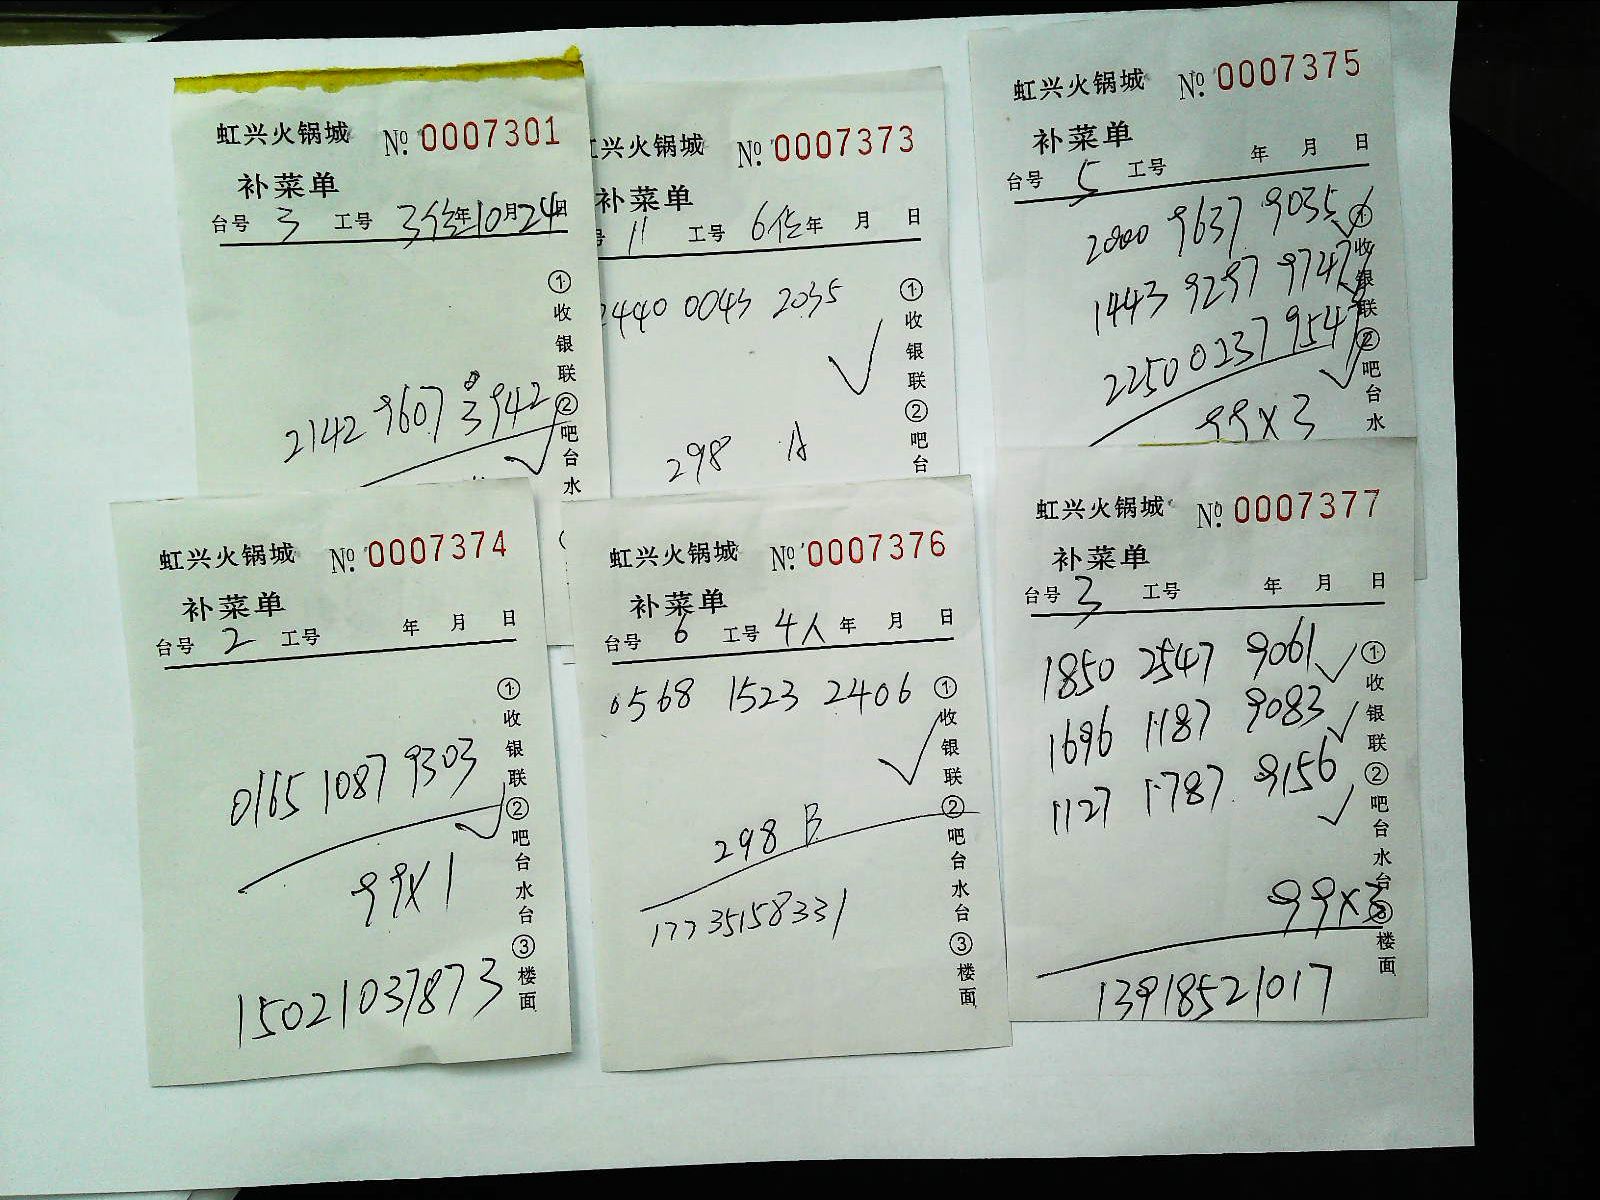 虹兴火锅城 №.0007301
补菜单
台号 3 工号 3位年10月24日
①收银联②吧台水
2142 9607 3942
虹兴火锅城 №.0007373
补菜单
号 11 工号 6位年 月 日
①收银联②吧台
2440 0043 2035
298 A
虹兴火锅城 №.0007375
补菜单
台号 5 工号 年 月 日
①收银联②吧台水
2000 9637 9035
1443 9297 9747
2250 0237 9547
99X3
虹兴火锅城 №.0007374
补菜单
台号 2 工号 年 月 日
①收银联②吧台水台③楼面
0165 1087 9303
99X1
15021037873
虹兴火锅城 №.0007376
补菜单
台号 6 工号 4人 年 月 日
①收银联②吧台水台③楼面
0568 1523 2406
298 B
17735158331
虹兴火锅城 №.0007377
补菜单
台号 3 工号 年 月 日
①收银联②吧台水台③楼面
1850 2547 9061
1696 1187 9083
1127 1787 9156
99X3
13918521017